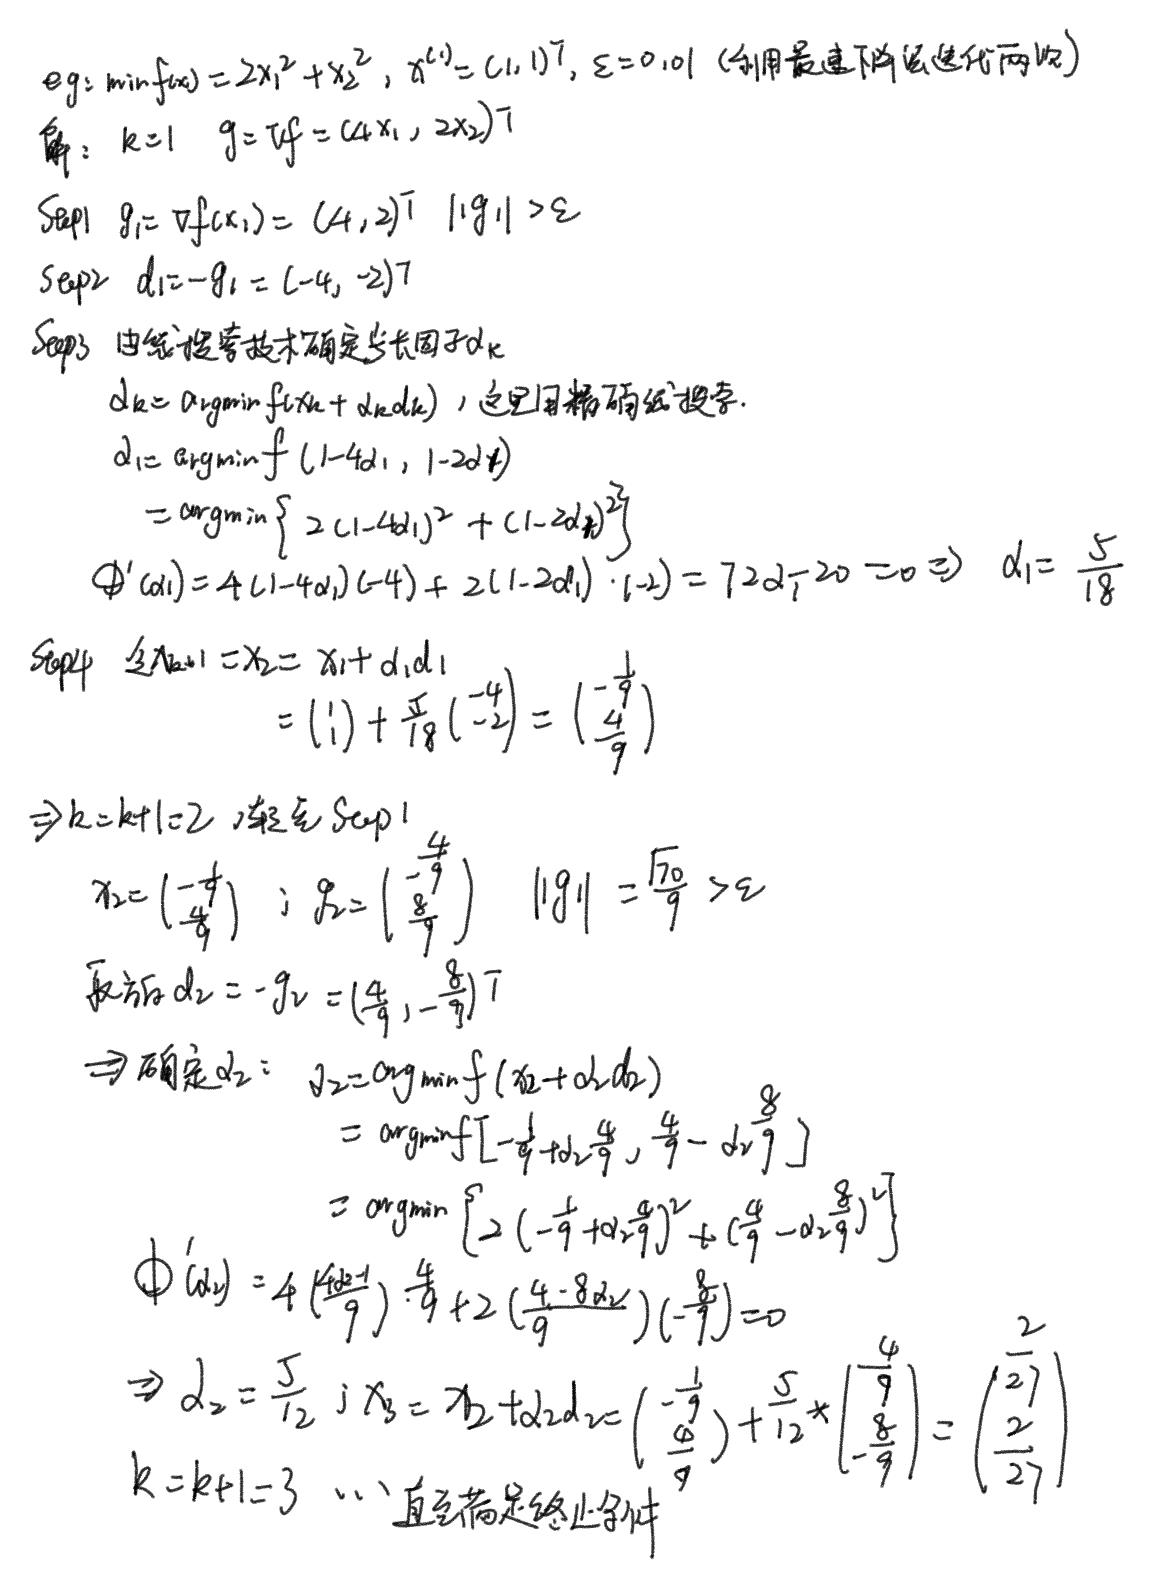 eg: min f(x) = 2x₁² + x₂², x⁽¹⁾ = (1,1)ᵀ, ε=0.01 (利用最速下降法迭代两次)
解: k=1 g=∇f=(4x₁, 2x₂)ᵀ
Step1 g₁=∇f(x₁)=(4,2)ᵀ ||g₁||>ε
Step2 d₁=-g₁=(-4,-2)ᵀ
Step3 由线搜索技术确定步长因子αₖ
αₖ=argmin f(xₖ+αₖdₖ), 这里用精确线搜索.
α₁=argmin f(1-4α₁, 1-2α₁)
=argmin{2(1-4α₁)²+(1-2α₁)²}
Φ'(α₁)=4(1-4α₁)(-4)+2(1-2α₁)·(-2)=72α₁-20=0⇒ α₁=5/18
Step4 令xₖ₊₁=x₂=x₁+α₁d₁
=(1 1)+5/18(-4 -2)=(-1/9 4/9)
⇒k=k+1=2, 转至Step1
x₂=(-1/9 4/9); g₂=(-4/9 8/9) ||g₁||=√70/9>ε
取方向d₂=-g₂=(4/9, -8/9)ᵀ
⇒确定α₂: α₂=argmin f(x₂+α₂d₂)
=argmin f[-1/9+α₂4/9, 4/9-α₂8/9]
=argmin{2(-1/9+α₂4/9)²+(4/9-α₂8/9)²}
Φ'(α₂)=4((4α₂-1)/9)·4/9+2((4-8α₂)/9)(-8/9)=0
⇒α₂=5/12; x₃=x₂+α₂d₂=(-1/9 4/9)+5/12*(4/9 -8/9)=(2/27 2/27)
k=k+1=3 ... 直至满足终止条件